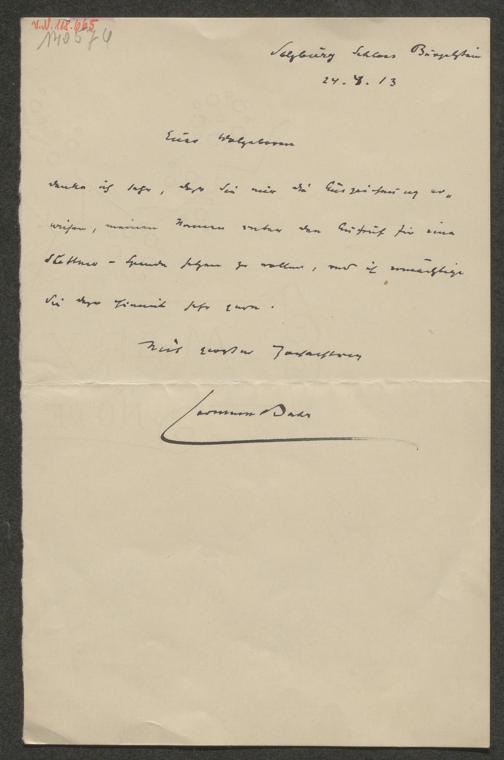 I.N. 112.665
140574
Salzburg Schloss Bürgelstein
24. 8. 13
Euer Wolgeboren
danke ich sehr, dass Sie mir die Auszeichnung er-
weisen, meinen Namen unter den Aufruf für eine
-Spende setzen zu wollen, und ich ermächtige
Sie dazu hiemit sehr gern.
Mit großer Hochachtung
Hermann Bahr